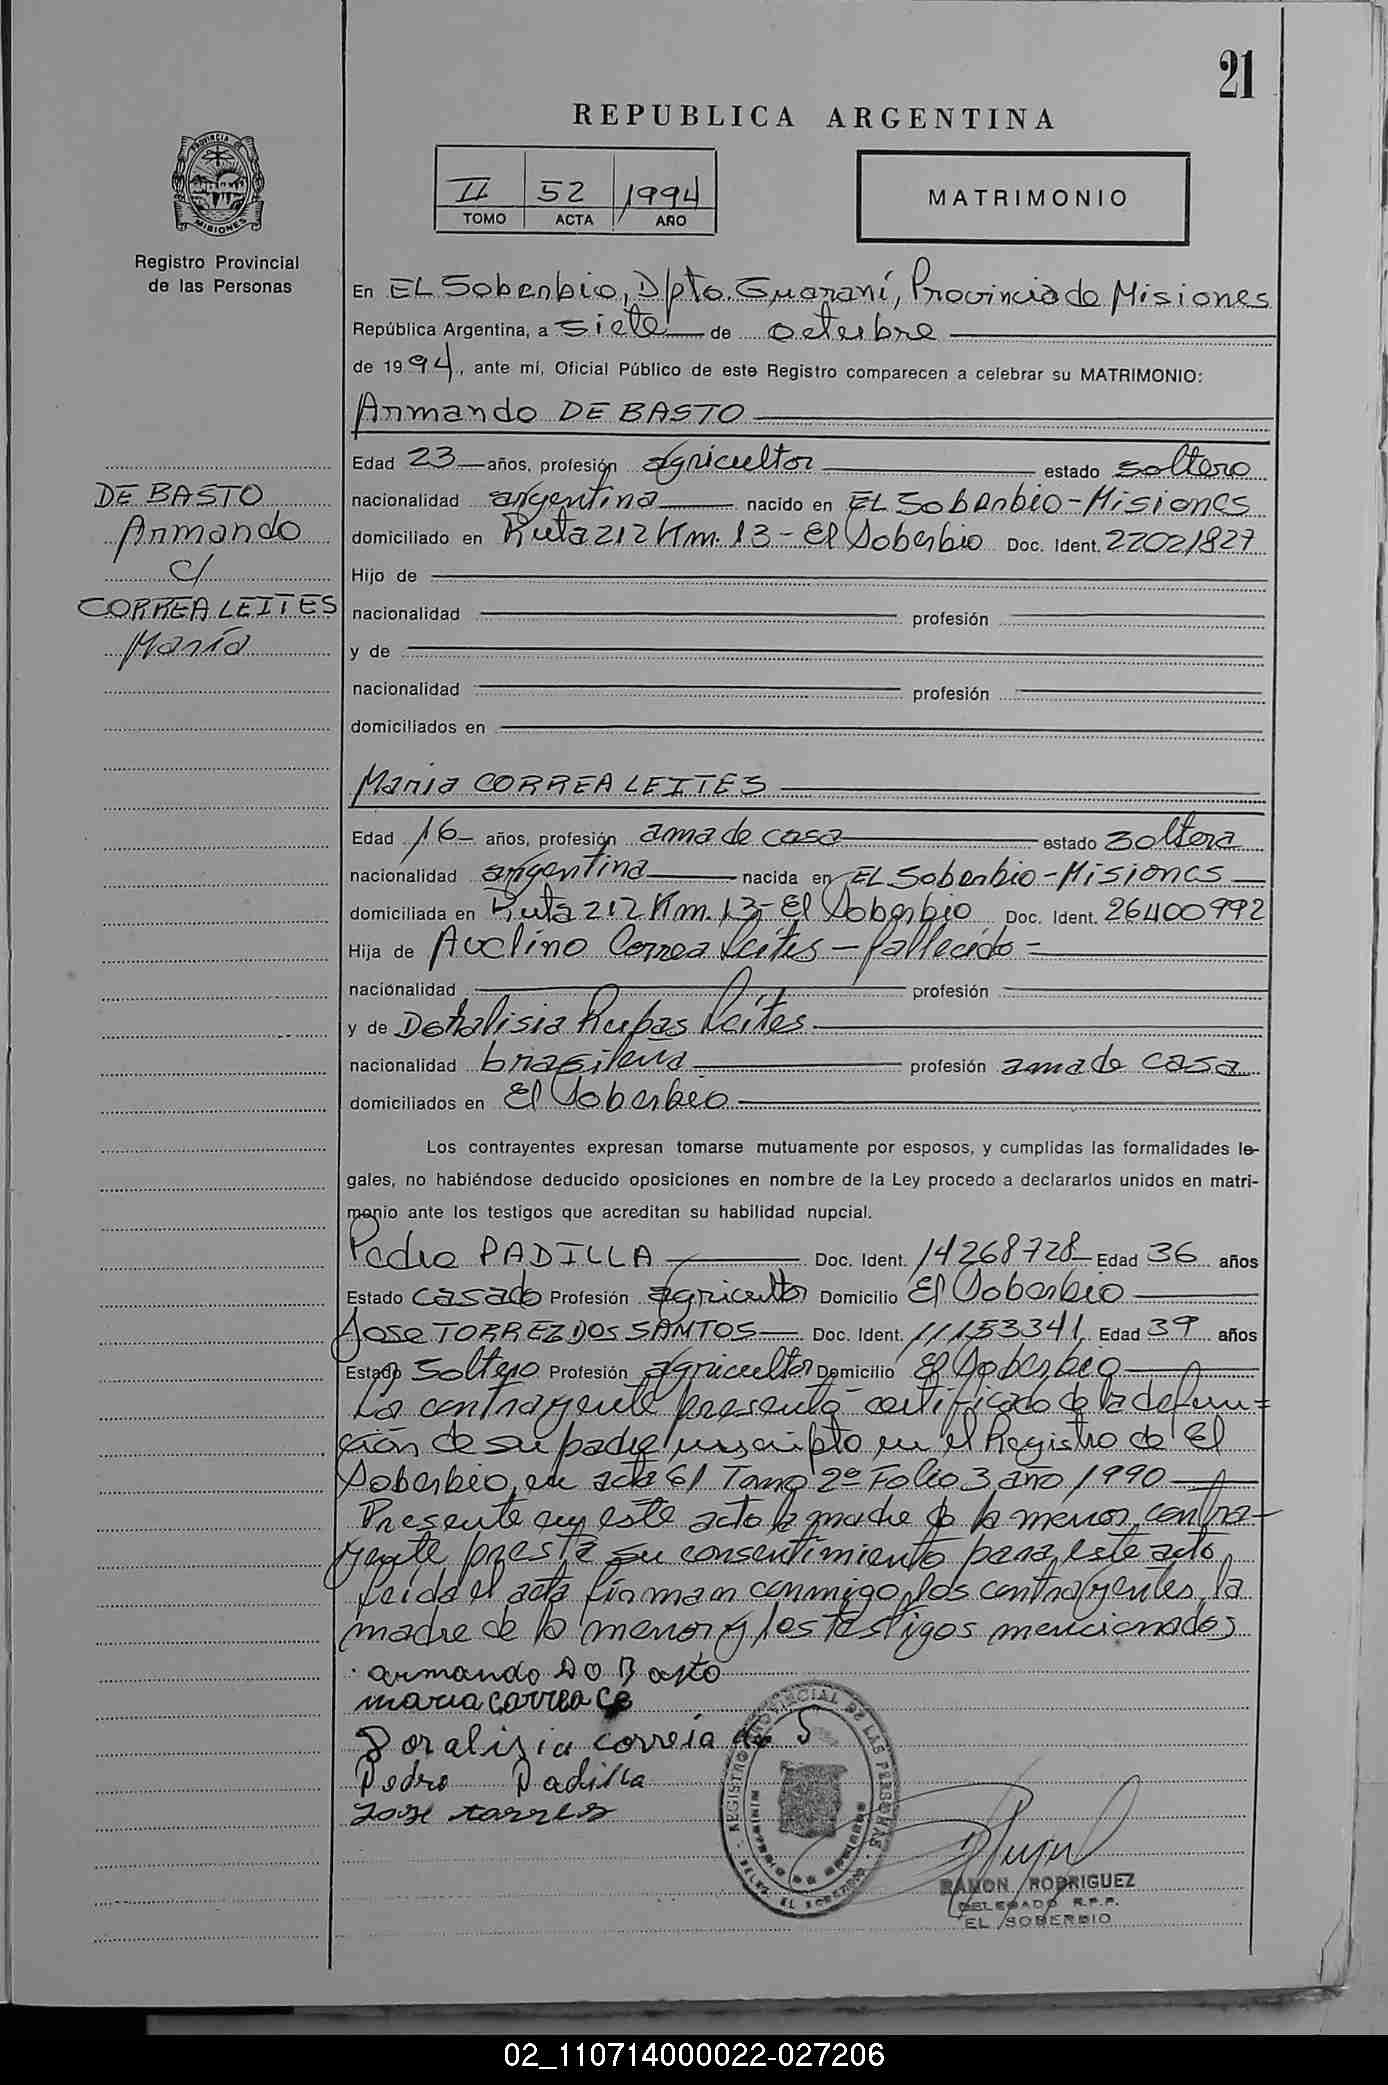 21
REPUBLICA ARGENTINA
II 52 1994
TOMO ACTA AÑO
MATRIMONIO
PROVINCIA DE
MISIONES
Registro Provincial
de las Personas
En EL Soberbio, Dpto. Guaraní, Provincia de Misiones
República Argentina, a siete de octubre
de 1994, ante mí, Oficial Público de este Registro comparecen a celebrar su MATRIMONIO:
Armando DE BASTO
Edad 23 años, profesión agricultor estado soltero
nacionalidad argentina nacido en EL Soberbio - Misiones
domiciliado en Ruta 212 Km. 13 - El Soberbio Doc. Ident. 22021827
Hijo de
nacionalidad profesión
y de
nacionalidad profesión
domiciliados en
DE BASTO
Armando
c/
CORREA LEITES
María
Maria CORREA LEITES
Edad 16 años, profesión ama de casa estado soltera
nacionalidad argentina nacida en EL Soberbio - Misiones
domiciliada en Ruta 212 Km. 13 - El Soberbio Doc. Ident. 26400992
Hija de Avelino Correa Leites - fallecido =
nacionalidad profesión
y de Rubas Leites
nacionalidad brasileña profesión ama de casa
domiciliados en El Soberbio
Los contrayentes expresan tomarse mutuamente por esposos, y cumplidas las formalidades le-
gales, no habiéndose deducido oposiciones en nombre de la Ley procedo a declararlos unidos en matri-
monio ante los testigos que acreditan su habilidad nupcial.
Pedro PADILLA Doc. Ident. 14268728 Edad 36 años
Estado casado Profesión agricultor Domicilio El Soberbio
Jose TORREZ DOS SANTOS Doc. Ident. 11153341 Edad 39 años
Estado soltero Profesión agricultor Domicilio El Soberbio
La contrayente presentó certificado de la defun=
ción de su padre inscripto en el Registro de El
Soberbio, en acta 61 Tomo 2º Folio 3 año 1990
Presente en este acto la madre de la menor contra-
yente presta su consentimiento para este acto
leida el acta firman conmigo los contrayentes, la
madre de la menor y los testigos mencionados
armando DO Basto
maria correa
Doralisia correia de
Pedro Padilla
Jose torres
REGISTRO PROVINCIAL DE LAS PERSONAS
MINISTERIO DE GOBIERNO
DELEG. EL SOBERBIO
RAMON RODRIGUEZ
DELEGADO R.P.P.
EL SOBERBIO
02_110714000022-027206